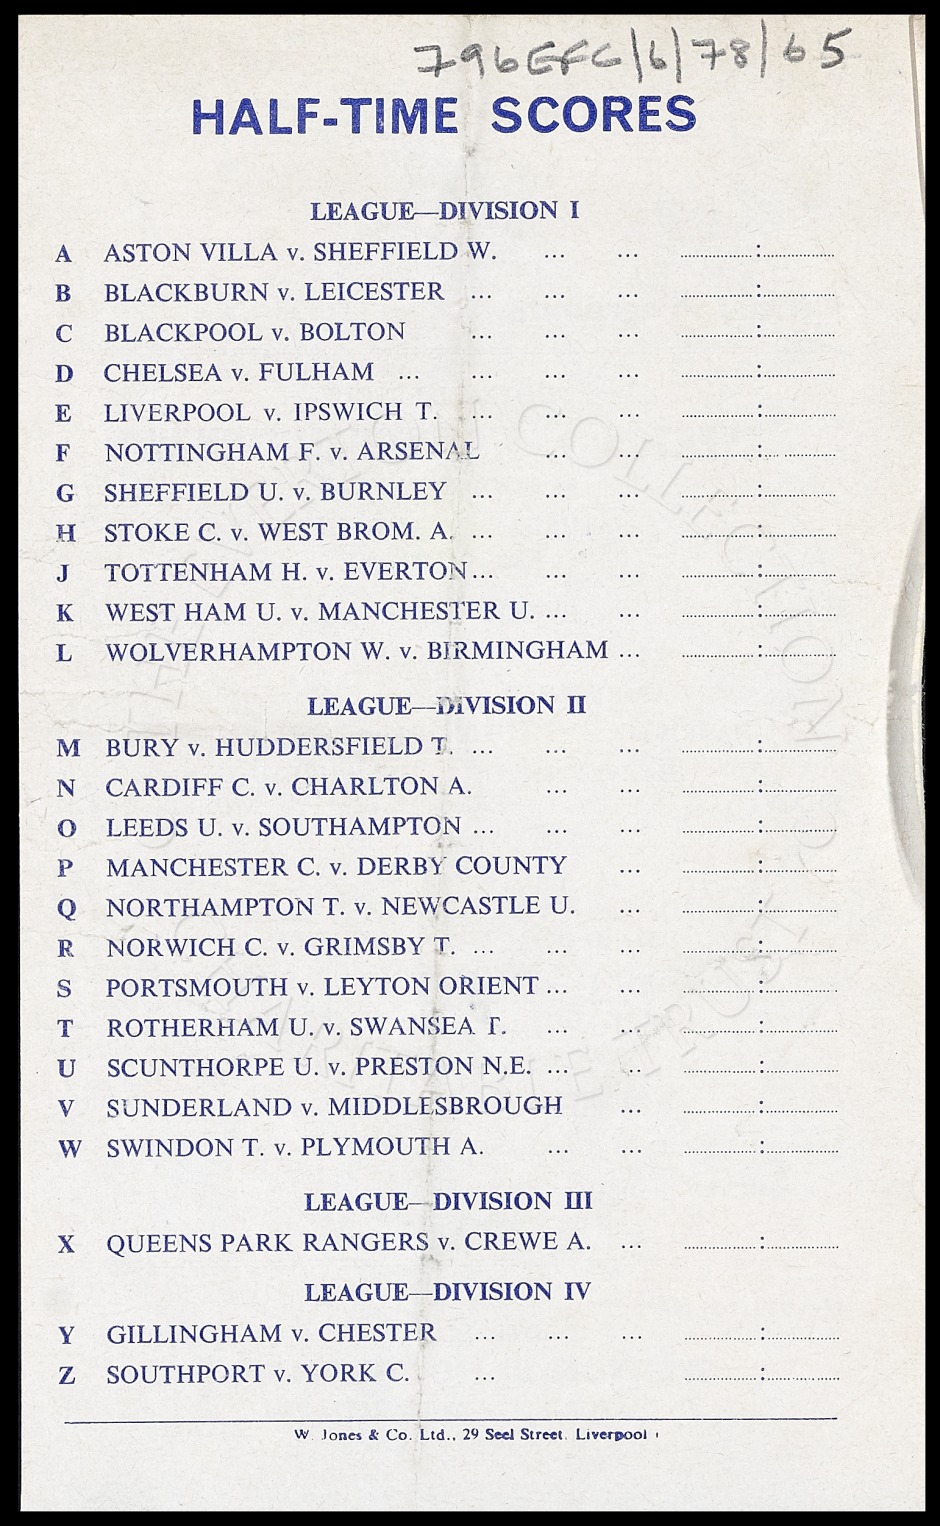 796EFC/6/78/65
HALF-TIME SCORES
LEAGUE—DIVISION I
A ASTON VILLA v. SHEFFIELD W. ... ... ............:............
B BLACKBURN v. LEICESTER ... ... ... ............:............
C BLACKPOOL v. BOLTON ... ... ... ............:............
D CHELSEA v. FULHAM ... ... ... ... ............:............
E LIVERPOOL v. IPSWICH T. ... ... ... ............:............
F NOTTINGHAM F. v. ARSENAL ... ... ............:............
G SHEFFIELD U. v. BURNLEY ... ... ... ............:............
H STOKE C. v. WEST BROM. A. ... ... ... ............:............
J TOTTENHAM H. v. EVERTON ... ... ... ............:............
K WEST HAM U. v. MANCHESTER U. ... ... ............:............
L WOLVERHAMPTON W. v. BIRMINGHAM ... ............:............
LEAGUE—DIVISION II
M BURY v. HUDDERSFIELD T. ... ... ... ............:............
N CARDIFF C. v. CHARLTON A. ... ... ............:............
O LEEDS U. v. SOUTHAMPTON ... ... ... ............:............
P MANCHESTER C. v. DERBY COUNTY ... ............:............
Q NORTHAMPTON T. v. NEWCASTLE U. ... ............:............
R NORWICH C. v. GRIMSBY T. ... ... ... ............:............
S PORTSMOUTH v. LEYTON ORIENT ... ... ............:............
T ROTHERHAM U. v. SWANSEA T. ... ... ............:............
U SCUNTHORPE U. v. PRESTON N.E. ... .. ............:............
V SUNDERLAND v. MIDDLESBROUGH ... ............:............
W SWINDON T. v. PLYMOUTH A. ... ... ............:............
LEAGUE—DIVISION III
X QUEENS PARK RANGERS v. CREWE A. ... ............:............
LEAGUE—DIVISION IV
Y GILLINGHAM v. CHESTER ... ... ... ............:............
Z SOUTHPORT v. YORK C. ... ............:............
W. Jones & Co. Ltd., 29 Seel Street, Liverpool 1
THE EVERTON COLLECTION
CHARITABLE TRUST